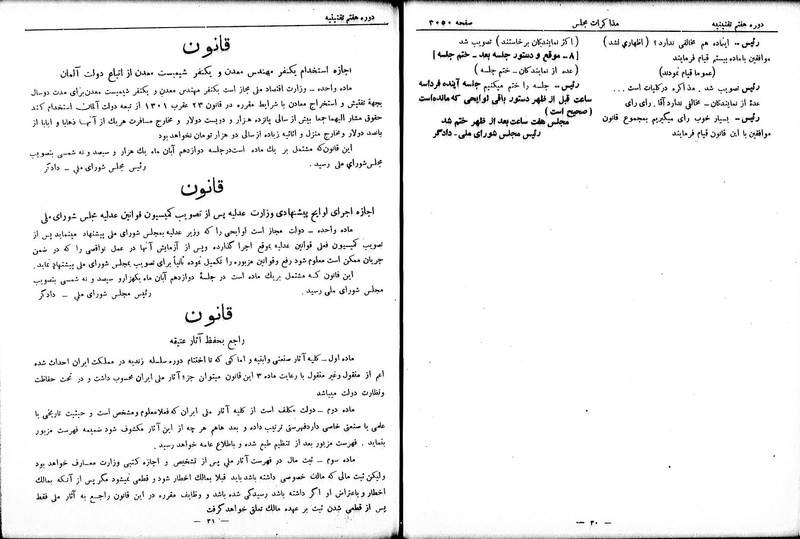 دوره هفتم تقنینیه
مذاکرات مجلس
صفحه ۳۰۵۰
رئیس ـ اینماده هم مخالفی ندارد؟ (اظهاری نشد)
موافقین باماده بیستم قیام فرمایند
(عموما قیام نمودند)
رئیس ـ تصویب شد. مذاکره درکلیات است...
عدهٔ از نمایندگان ـ مخالفی ندارد آقا، رأی رأی
رئیس ـ بسیار خوب رأی میگیریم بمجموع قانون
موافقین با این قانون قیام فرمایند
(اکثر نمایندگان برخاستند) تصویب شد
[۸ ـ موقع و دستور جلسه بعد ـ ختم جلسه]
(عده از نمایندگان ـ ختم جلسه)
رئیس ـ جلسه را ختم میکنیم جلسه آینده فرداسه
ساعت قبل از ظهر دستور باقی لوایحی که مانده‌است
(صحیح است)
مجلس هفت ساعت بعد از ظهر ختم شد
رئیس مجلس شورای ملی ـ دادگر
ـ ۳۰ ـ
دوره هفتم تقنینیه
قانون
اجازه استخدام یکنفر مهندس معدن و یکنفر شیمیست معدن از اتباع دولت آلمان
ماده واحده ـ وزارت اقتصاد ملی مجاز است یکنفر مهندس معدن و یکنفر شیمیست معدن برای مدت دوسال
بجهة تفتیش و استخراج معادن با شرایط مقرره در قانون ۲۳ عقرب ۱۳۰۱ از تبعه دولت آلمان استخدام کند
حقوق مشار الیهما جمعا بیش از سالی پانزده هزار و دویست دولار و مخارج مسافرت هریك از آنها ذهابا و ایابا از
پانصد دولار و مخارج منزل و اثاثیه زیاده از سالی دو هزار تومان نخواهد بود
این قانون‌که مشتمل بر یك ماده است‌درجلسه دوازدهم آبان ماه یك هزار و سیصد و نه شمسی بتصویب
مجلس‌شورای ملی رسید. رئیس مجلس شورای ملی ـ دادگر
قانون
اجازه اجرای لوایح پیشنهادی وزارت عدلیه پس از تصویب کمیسیون قوانین عدلیه مجلس شورای ملی
ماده واحده ـ دولت مجاز است لوایحی را که وزیر عدلیه بمجلس شورای ملی پیشنهاد مینماید پس از
تصویب کمیسیون فعلی قوانین عدلیه بموقع اجرا گذارده وپس از آزمایش آنها در عمل نواقصی را که در ضمن
جریان ممکن است معلوم شود رفع وقوانین مزبوره را تکمیل نموده ثانیاً برای تصویب بمجلس شورای ملی پیشنهاد نماید.
این قانون که مشتمل بریك ماده است در جلسهٔ دوازدهم آبان ماه یکهزارو سیصد و نه شمسی بتصویب
مجلس شورای ملی رسید. رئیس مجلس شورای ملی ـ دادگر
قانون
راجع بحفظ آثار عتیقه
ماده اول ـ کلیه آثار صنعتی وابنیه و اماکنی که تا اختتام دوره سلسله زندیه در مملکت ایران احداث شده
اعم از منقول وغیر منقول با رعایت ماده ۳ این قانون میتوان جزء آثار ملی ایران محسوب داشت و در تحت حفاظت
ونظارت دولت میباشد
ماده دوم ـ دولت مکلف است از کلیه آثار ملی ایران که فعلا معلوم ومشخص است و حیثیت تاریخی یا
علمی یا صنعتی خاصی داردفهرستی ترتیب داده و بعد هاهم هر چه از این آثار مکشوف شود ضمیمه فهرست مزبور
بنماید. فهرست مزبور بعد از تنظیم طبع شده و باطلاع عامه خواهد رسید.
ماده سوم ـ ثبت مال در فهرست آثار ملی پس از تشخیص و اجازه کتبی وزارت معارف خواهد بود
ولیکن ثبت مالی که مالك خصوصی داشته باشد باید قبلا بمالك اخطار شود و قطعی نمیشود مگر پس از آنکه بمالك
اخطار و باعتراض او اگر داشته باشد رسیدگی شده باشد و وظایف مقرره در این قانون راجع به آثار ملی فقط
پس از قطعی شدن ثبت بر عهده مالك تعلق خواهد گرفت
ـ ۳۱ ـ